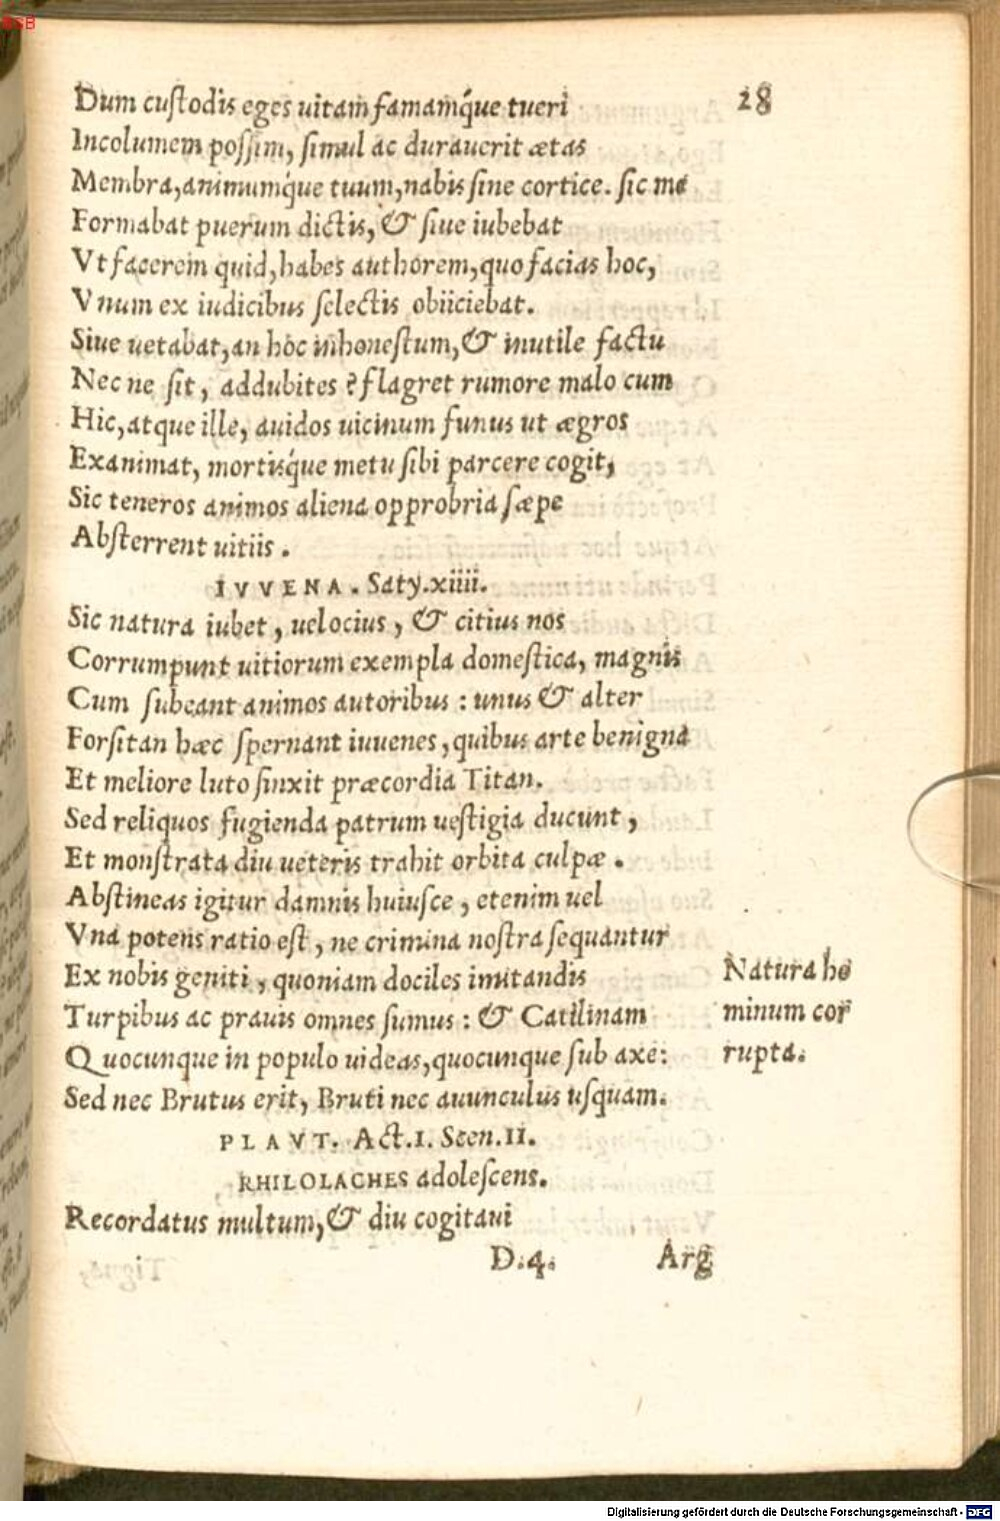 28
Dum custodis eges uitam famamq́ue tueri
Incolumem possim, simul ac durauerit ætas
Membra, animumq́ue tuum, nabis sine cortice. sic me
Formabat puerum dictis, & siue iubebat
Vt facerem quid, habes authorem, quo facias hoc,
Vnum ex iudicibus selectis obiiciebat.
Siue uetabat, an hoc inhonestum, & inutile factu
Nec ne sit, addubites? flagret rumore malo cum
Hic, atque ille, auidos uicinum funus ut ægros
Exanimat, mortisq́ue metu sibi parcere cogit,
Sic teneros animos aliena opprobria sæpe
Absterrent uitiis.
IVVENA. Saty.xiiii.
Sic natura iubet, uelocius, & citius nos
Corrumpunt uitiorum exempla domestica, magnis
Cum subeant animos autoribus: unus & alter
Forsitan hæc spernant iuuenes, quibus arte benigna
Et meliore luto finxit præcordia Titan.
Sed reliquos fugienda patrum uestigia ducunt,
Et monstrata diu ueteris trahit orbita culpæ.
Abstineas igitur damnis huiusce, etenim uel
Vna potens ratio est, ne crimina nostra sequantur
Ex nobis geniti, quoniam dociles imitandis
Turpibus ac prauis omnes sumus: & Catilinam
Quocunque in populo uideas, quocunque sub axe:
Sed nec Brutus erit, Bruti nec auunculus usquam.
Natura ho
minum cor
rupta.
PLAVT. Act.I. Scen.II.
RHILOLACHES adolescens.
Recordatus multum, & diu cogitaui
D.4. Arg
BSB
Digitalisierung gefördert durch die Deutsche Forschungsgemeinschaft - DFG